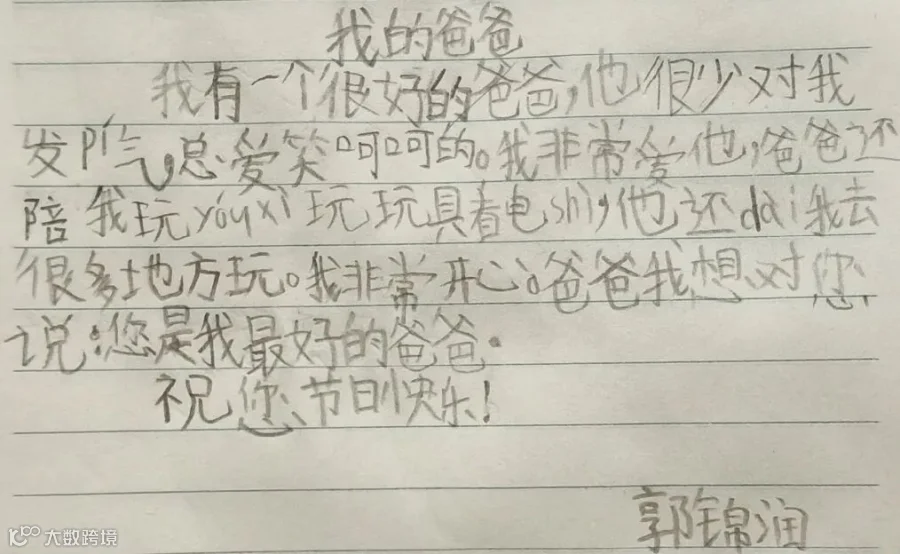 我的爸爸
我有一个很好的爸爸,他很少对我
发脾气,总爱笑呵呵的。我非常爱他,爸爸还
陪我玩yóuxì玩玩具看电shì,他还dài我去
很多地方玩。我非常开心。爸爸我想对您
说:您是我最好的爸爸.
祝您节日快乐!
郭锦润
大数跨境